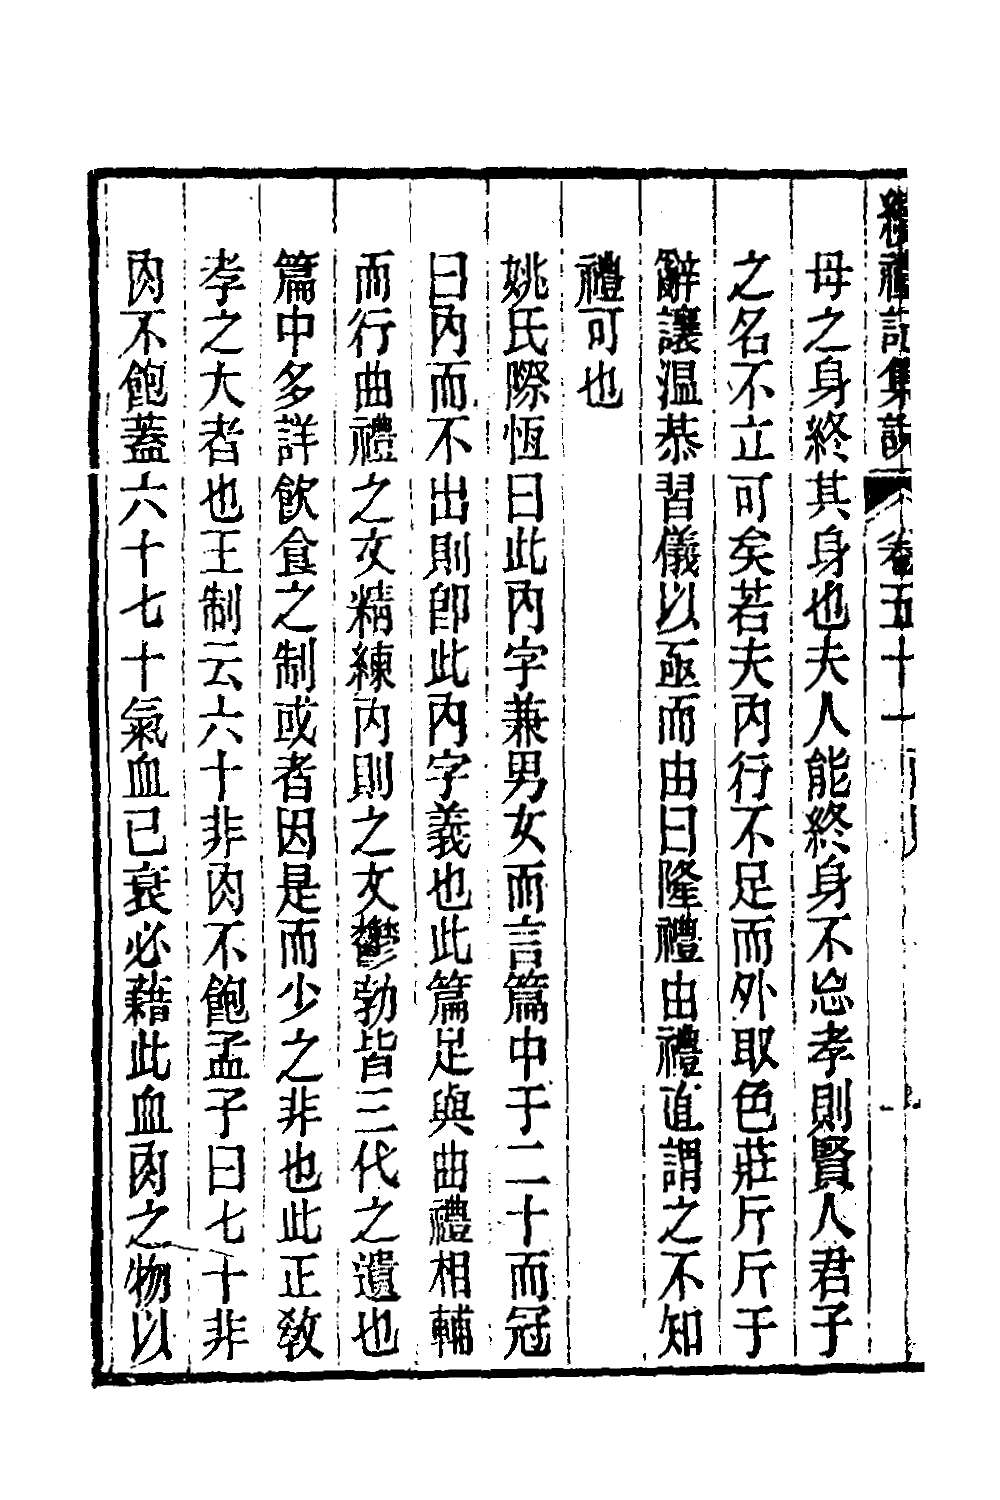 續禮記集說 卷五十一
母之身終其身也夫人能終身不忘孝則賢人君子
之名不立可矣若夫内行不足而外取色莊斤斤于
辭讓溫恭習儀以亟而由曰隆禮由禮直謂之不知
禮可也
姚氏際恆曰此内字兼男女而言篇中于二十而冠
曰内而不出則卽此内字義也此篇足與曲禮相輔
而行曲禮之文精練内則之文鬱勃皆三代之遺也
篇中多詳飲食之制或者因是而少之非也此正敎
孝之大者也王制云六十非肉不飽孟子曰七十非
肉不飽蓋六十七十氣血已衰必藉此血肉之物以